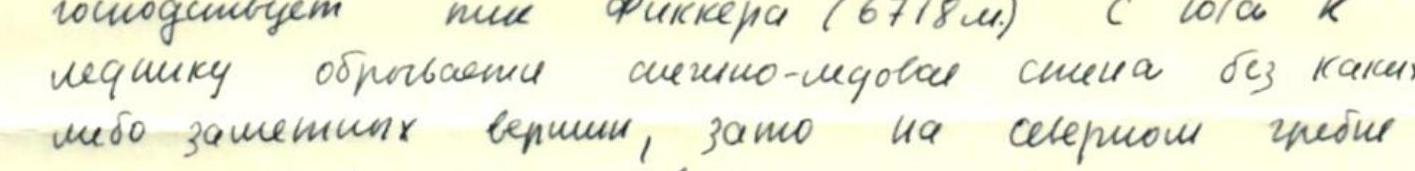 господствует пик Фиккера (6718 м.) С юга к
леднику обрывается снежно-ледовая стена без каких
либо заметных вершин, зато на северном гребне